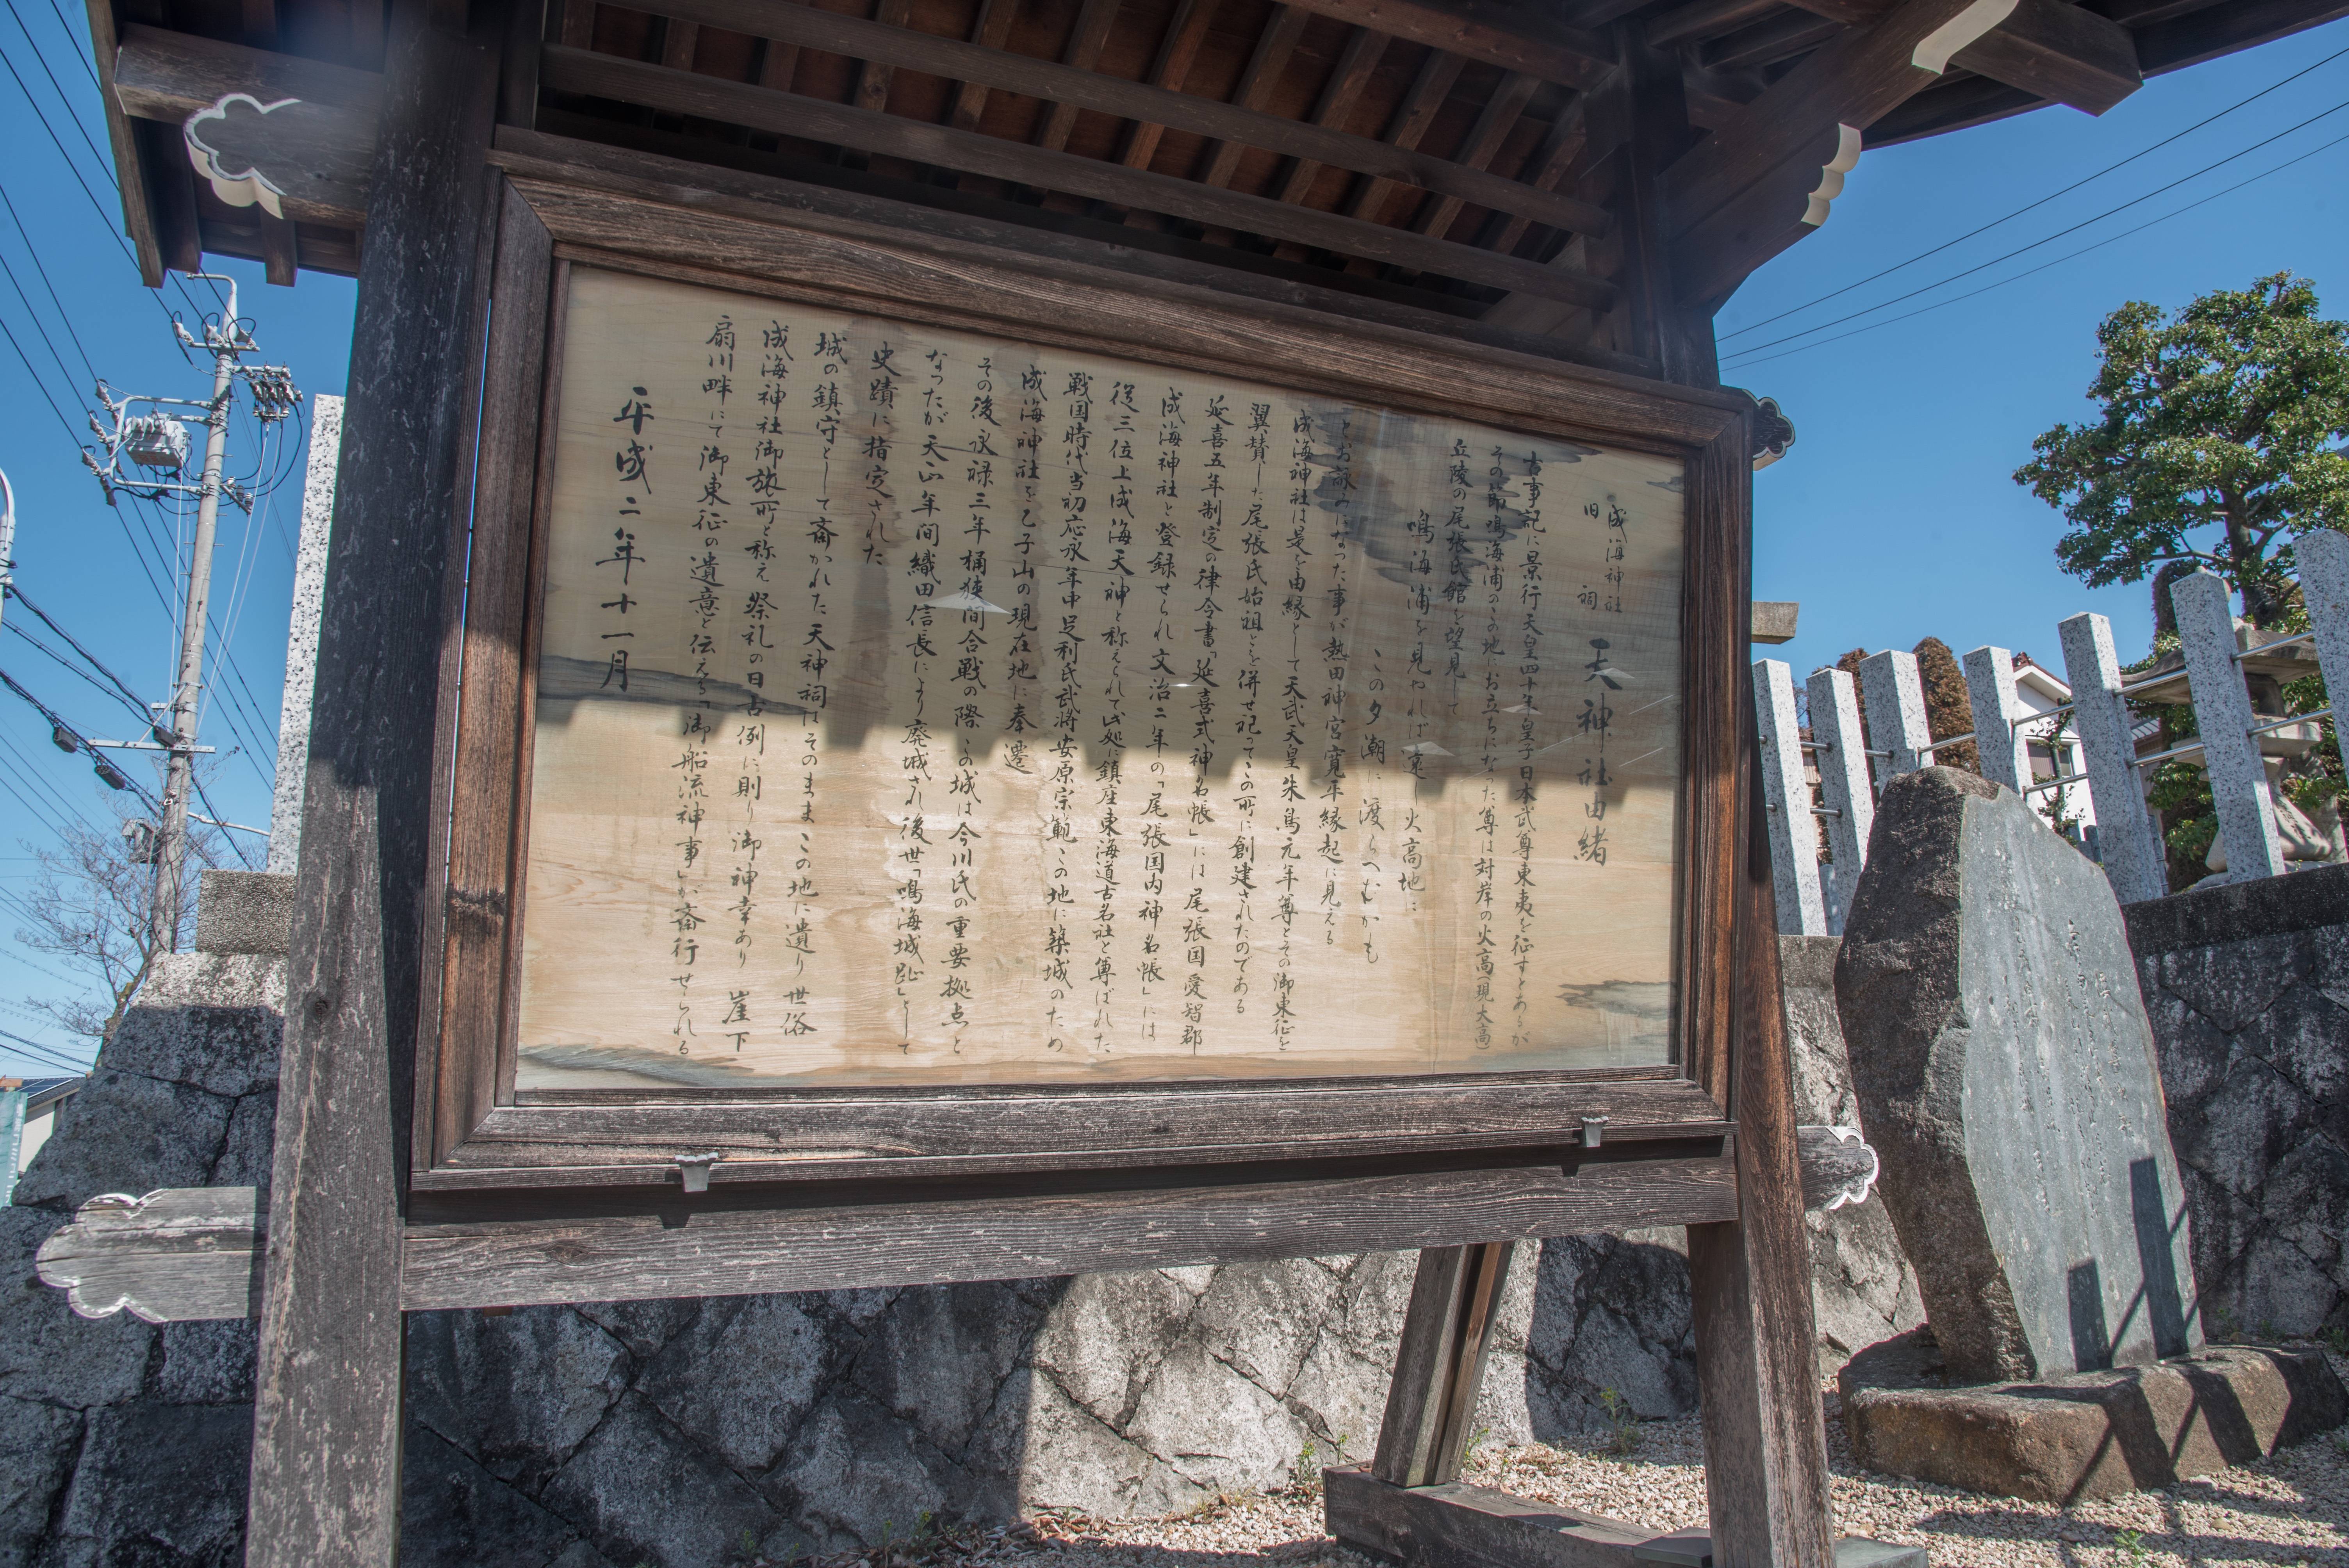 成海神社
旧祠
天神社由緒
古事記に景行天皇四十年皇子日本武尊東夷を征すとあるが
その節鳴海浦のこの地にお立ちになった尊は対岸の火高(現大高)
丘陵の尾張氏館を望見して
鳴海浦を見やれば遠し火高地に
この夕潮に渡らへむかも
とお詠みになった事が熱田神宮寛平縁起に見える
成海神社は是を由縁として天武天皇朱鳥元年尊とその御東征を
翼賛した尾張氏始祖とを併せ祀ってこの所に創建されたのである
延喜五年制定の律令書「延喜式神名帳」には尾張国愛智郡
成海神社と登録せられ文治二年の「尾張国内神名帳」には
従三位上成海天神と称えられて此処に鎮座東海道古名社と尊ばれた
戦国時代当初応永年中足利氏武将安原宗範この地に築城のため
成海神社を乙子山の現在地に奉遷
その後永禄三年桶狭間合戦の際この城は今川氏の重要拠点と
なったが天正年間織田信長により廃城され後世「鳴海城趾」として
史蹟に指定された
城の鎮守として斎かれた天神祠はそのままこの地に遺り世俗
成海神社御旅所と称え祭礼の日古例に則り御神幸あり 崖下
扇川畔にて御東征の遺意を伝える「御船流神事」が斎行せられる
平成二年十一月